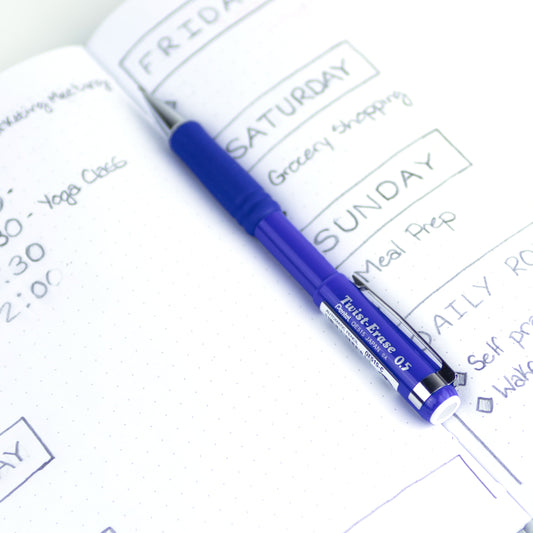 Meeting
30 - Yoga Class
:30
2:00
AY
FRIDAY
SATURDAY
Grocery Shopping
SUNDAY
Meal Prep
DAILY RO
Self pr
Wake
Twist-Erase 0.5
Pentel QE515 JAPAN